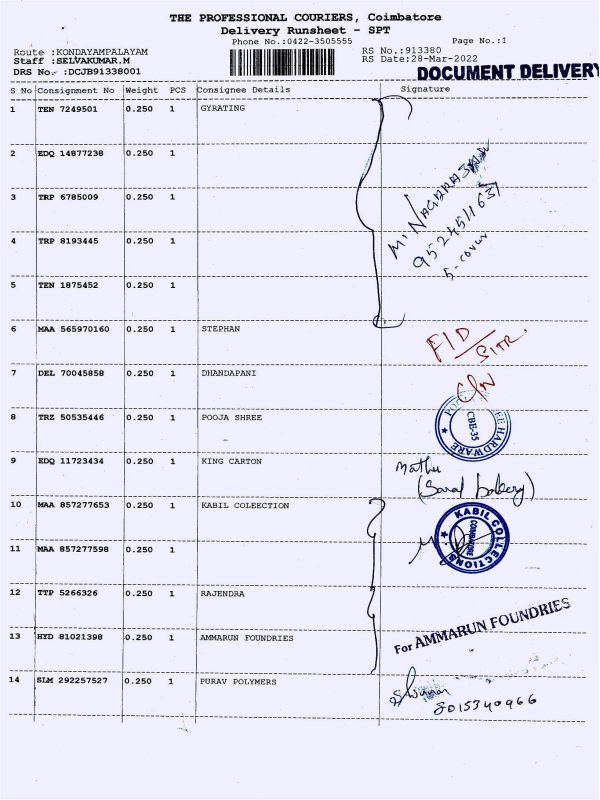 THE PROFESSIONAL COURIERS, Coimbatore
Delivery Runsheet - SPT
Phone No.:0422-3505555 Page No.:1
Route :KONDAYAMPALAYAM RS No.:913380
Staff :SELVAKUMAR.M RS Date:28-Mar-2022
DRS No.:DCJB91338001 DOCUMENT DELIVERY
S No Consignment No Weight PCS Consignee Details Signature
1 TEN 7249501 0.250 1 GYRATING
2 EDQ 14877238 0.250 1
M. NAGARAJAN
3 TRP 6785009 0.250 1
9524511637
4 TRP 8193445 0.250 1
5-cover
5 TEN 1875452 0.250 1
6 MAA 565970160 0.250 1 STEPHAN
F/D
7 DEL 70045858 0.250 1 DHANDAPANI
C/N
8 TRZ 50535446 0.250 1 POOJA SHREE
HARDWARE
CBE-35
9 EDQ 11723434 0.250 1 KING CARTON
10 MAA 857277653 0.250 1 KABIL COLEECTION
KABIL COLLECTIONS
COIMBATORE
11 MAA 857277598 0.250 1
12 TTP 5266326 0.250 1 RAJENDRA
13 HYD 81021398 0.250 1 AMMARUN FOUNDRIES
For AMMARUN FOUNDRIES
14 SLM 292257527 0.250 1 PURAV POLYMERS
8015340966